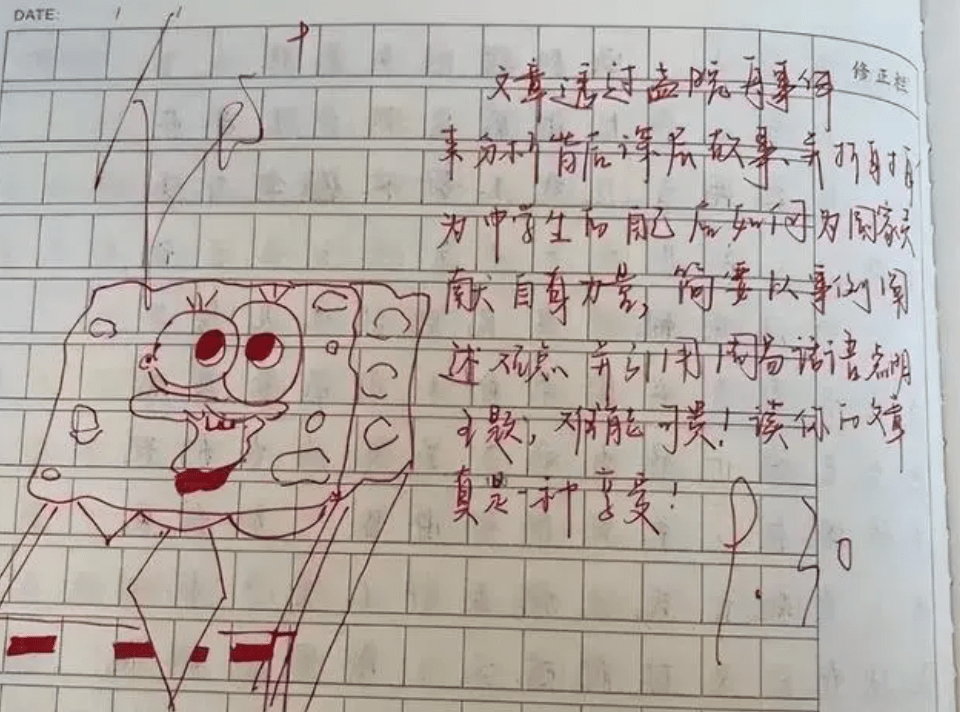 DATE: / /
修正栏
文章透过孟晚舟事件
来分析背后深层故事、并
为中学生的自己后如何为国家贡
献大自身力量，简要以事例阐
述观点 并引用周易话语点明
主题，难能可贵！读你的文章
真是一种享受！